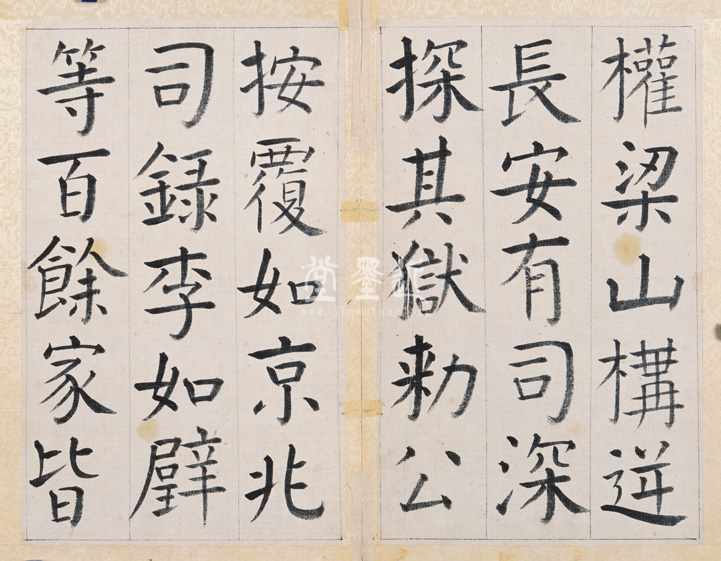 權梁山構逆
長安有司深
探其獄勅公
按覆如京兆
司録李如璧
等百餘家皆